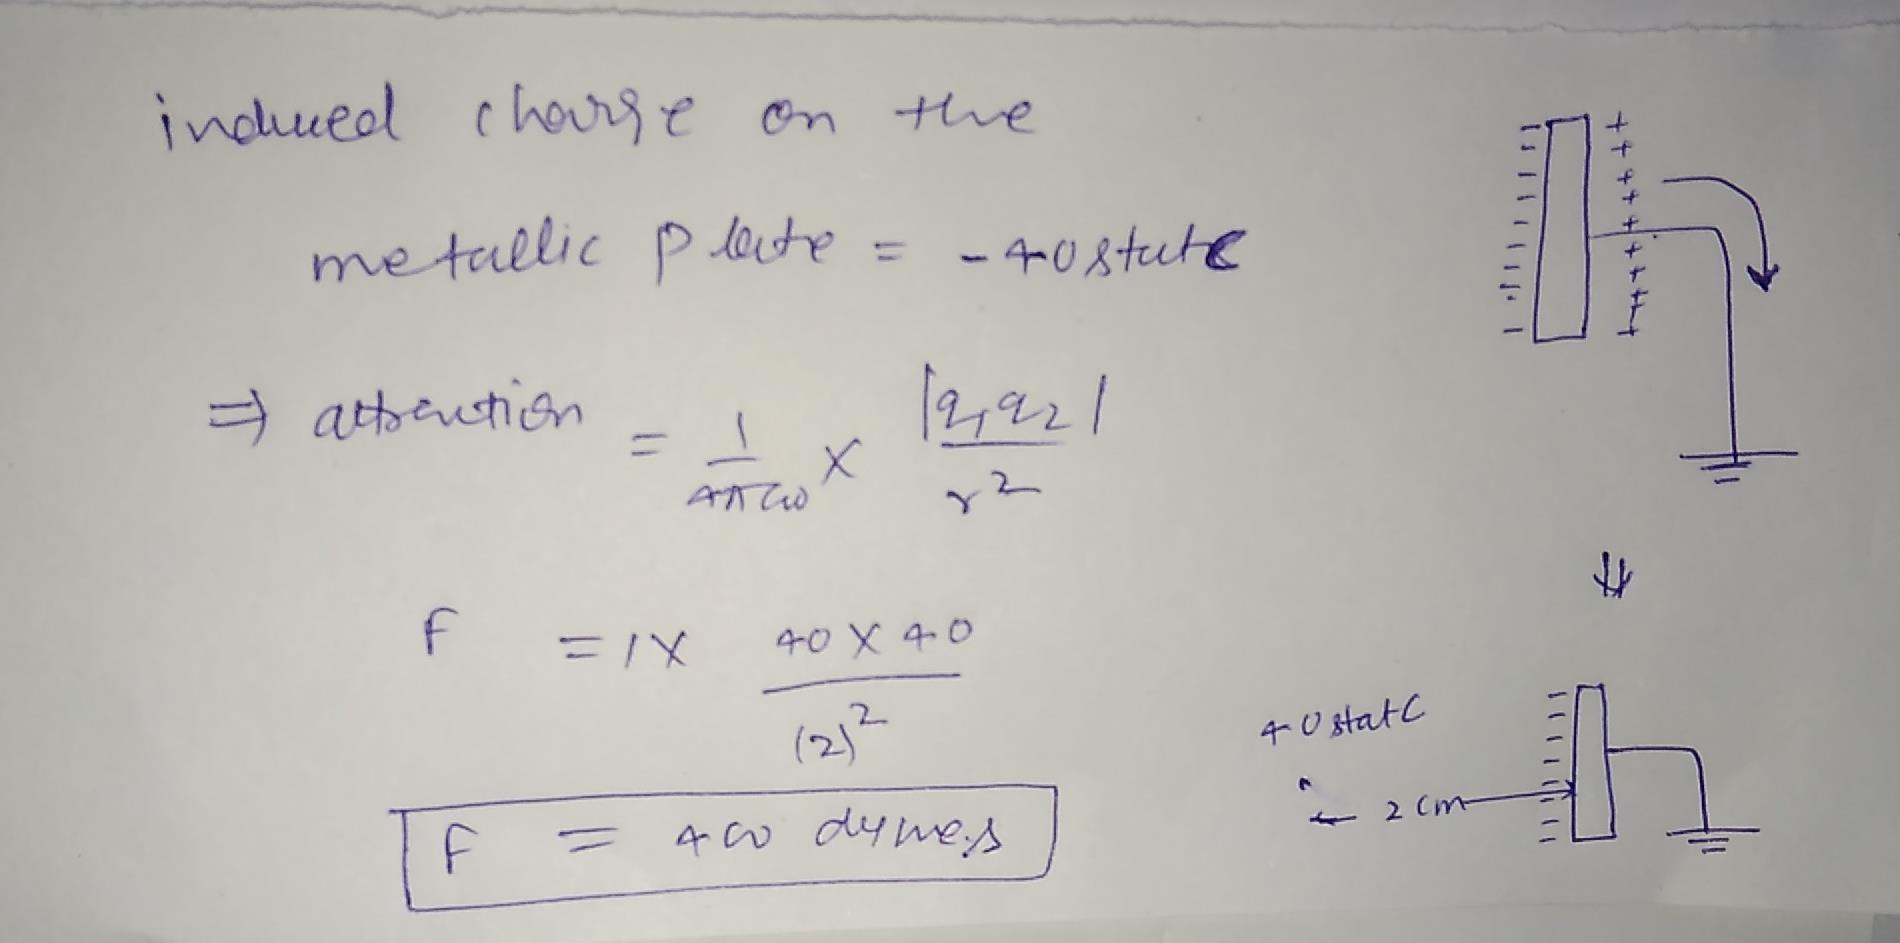 induced charge on the
metallic plate = - 40 statC
⇒ attraction = 1/4πε0 × |q1q2|/r²
F = 1 × 40 × 40/(2)²
F = 400 dynes
- - - - - - - - - -
+ + + + + + + + + +
⇓
40 statC
← 2 cm →
- - - - - - - - - -